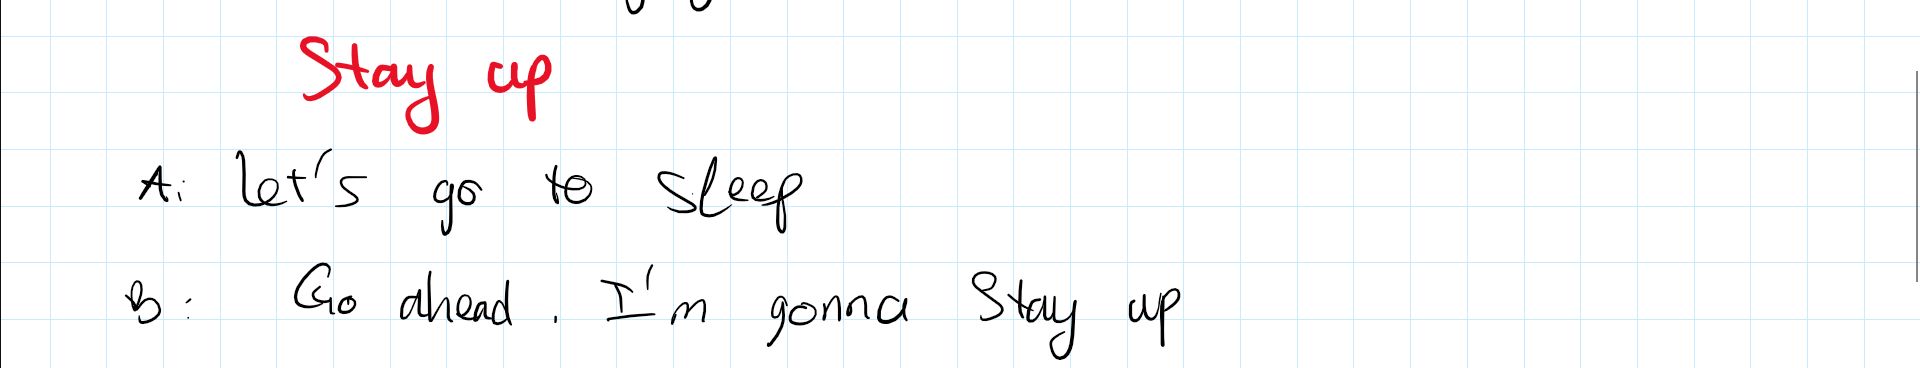 Stay up
A: Let's go to sleep
B: Go ahead. I'm gonna Stay up